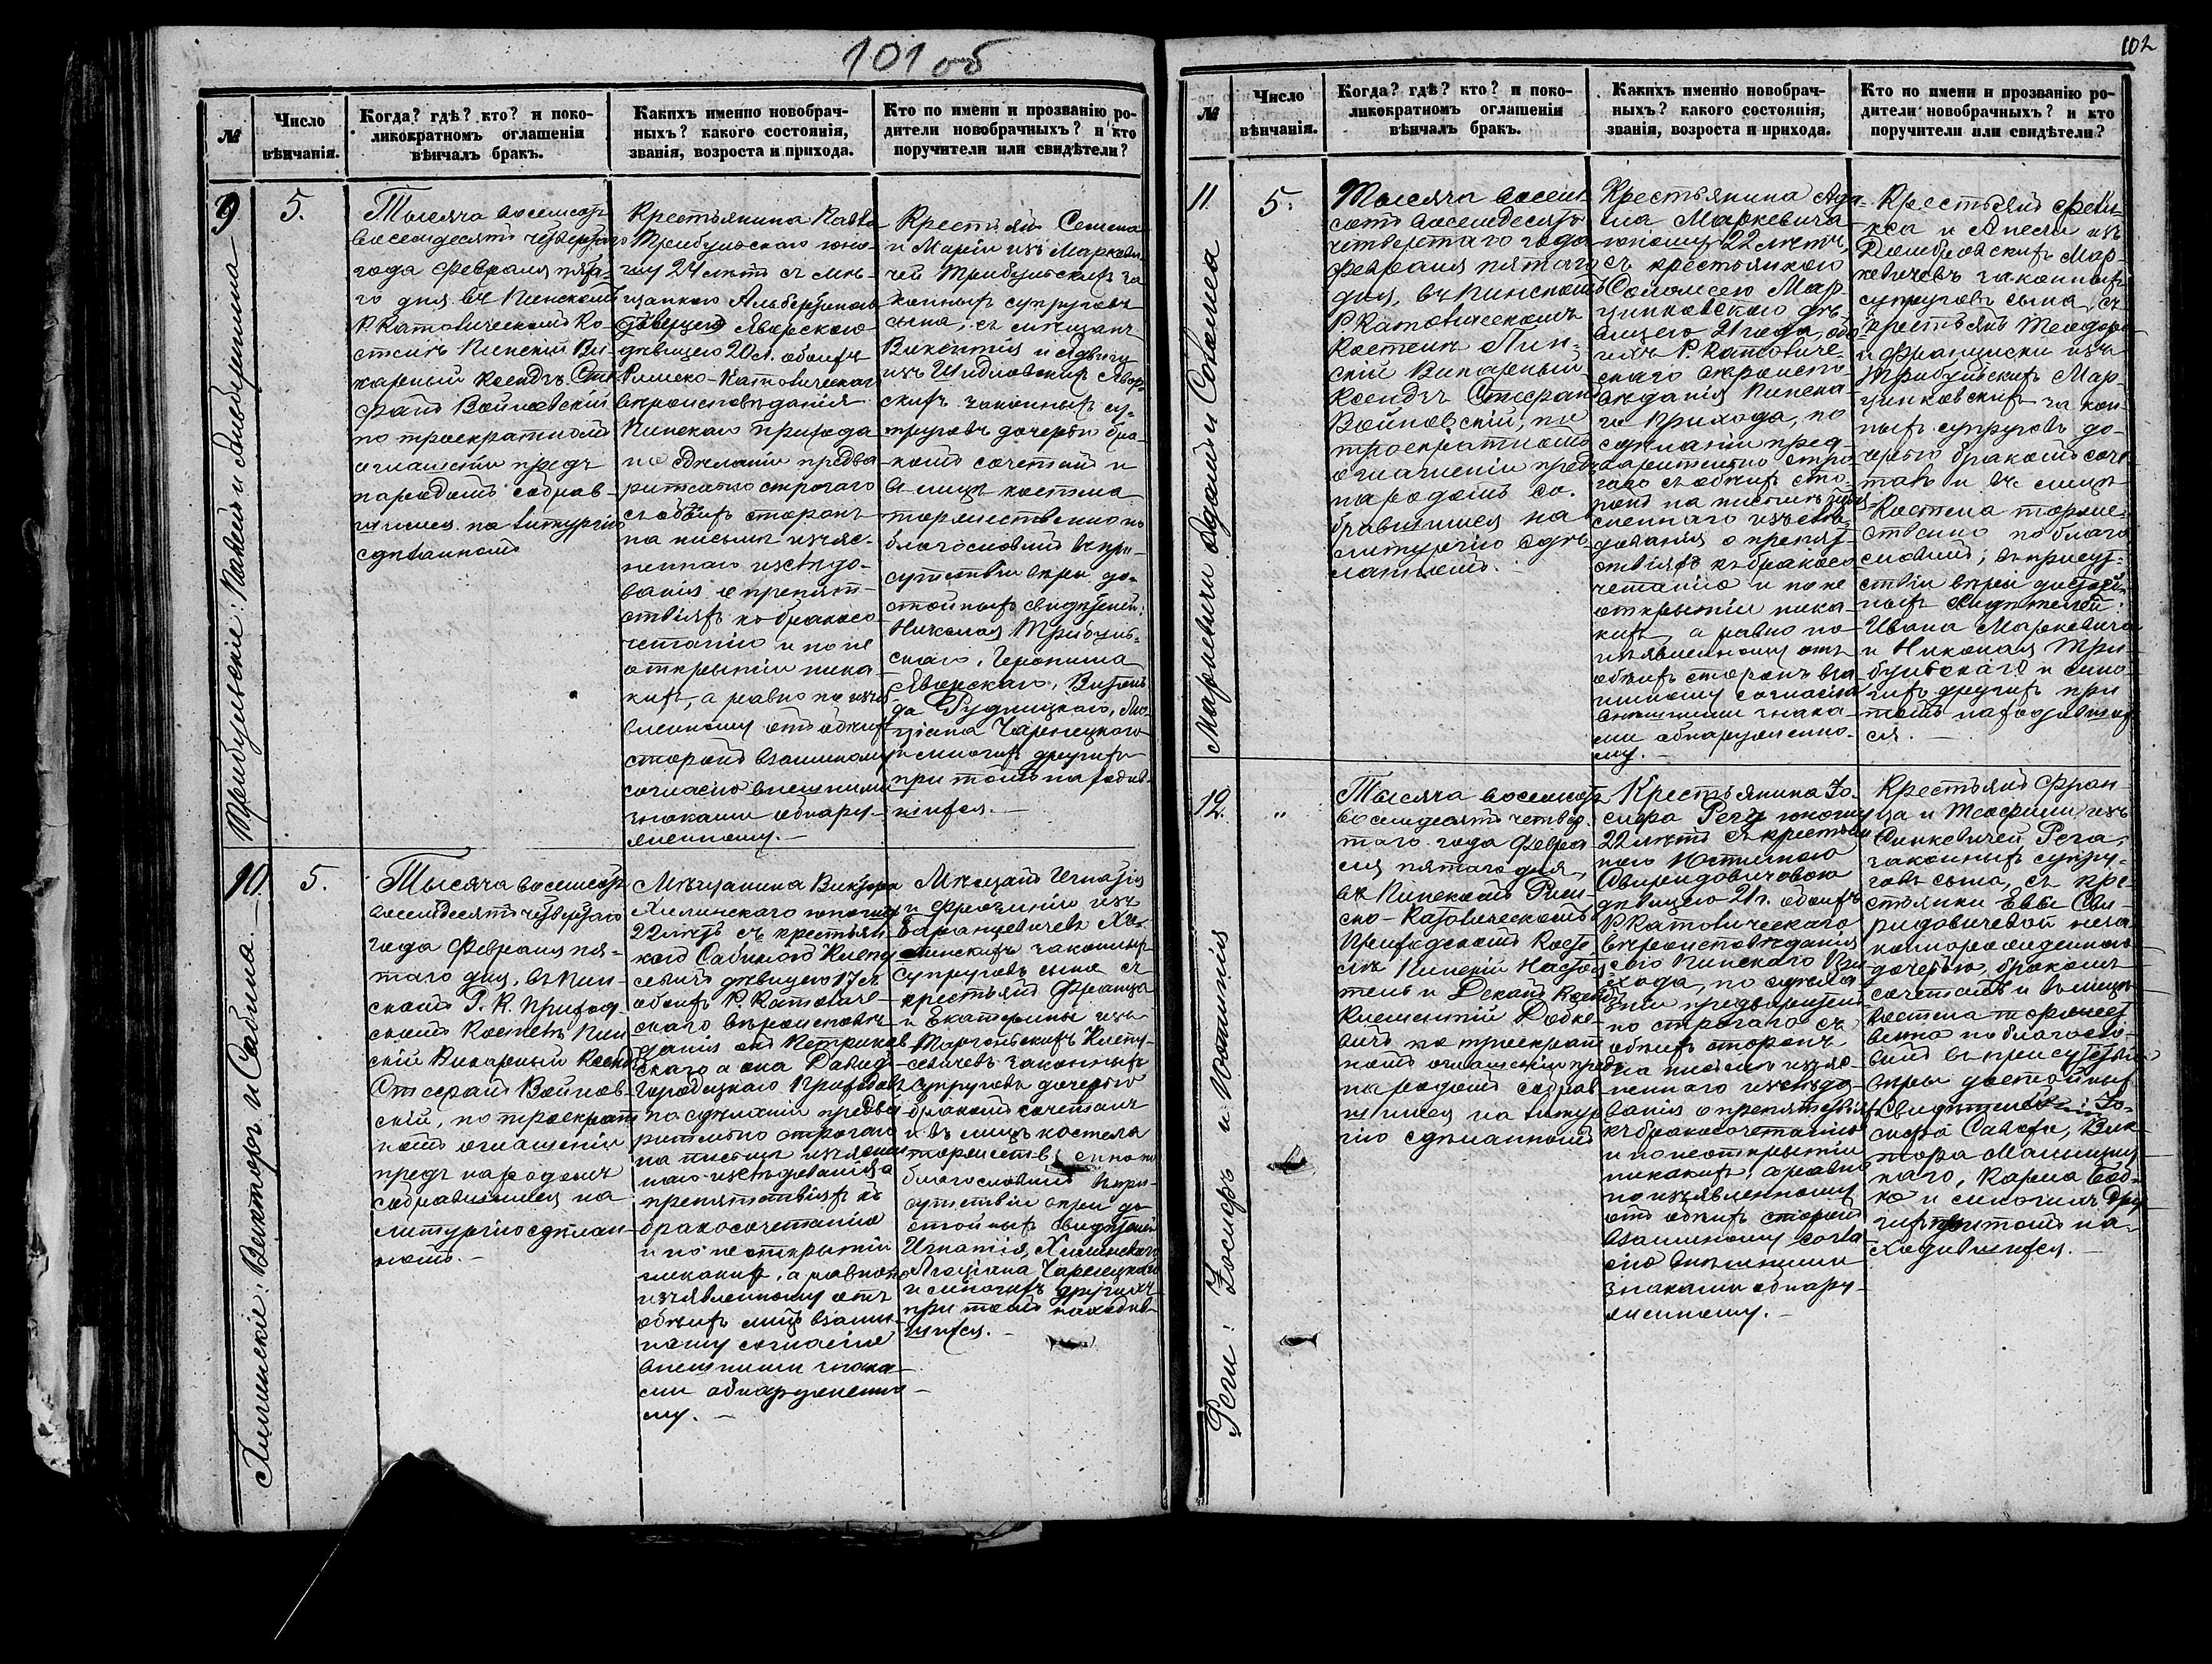 101 об
№
Число
вѣнчанія.
Когда? гдѣ? кто? и поко-
ликократномъ оглашеніи
вѣнчалъ бракъ.
Какихъ именно новобрач-
ныхъ? какого состоянія,
званія, возроста и прихода.
Кто по имени и прозванію ро-
дители новобрачныхъ? и кто
поручители или свидѣтели?
9
Трибульскіе: Павелъ и Альбертина
5.
Тысяча восемсотъ
восемдесятъ четвертаго
года февраля пята-
го дня въ Пинскомъ
Р. Католическомъ Ко-
стелѣ Пинскій Ви-
карный Ксендзъ Сте-
фанъ Войновскій
по троекратномъ
оглашеніи предъ
народомъ собрав-
шимся на литургію
сдѣланномъ
Крестьянина Павла
Трибульскаго юно-
шу 24 лѣтъ съ мѣ-
щанкою Альбертиною
дѣвицею Яворскою
дѣвицею 20 л. обоихъ
Римско-Католическаго
вѣроисповѣданія
Пинскаго прихода
по сдѣланіи предва
рительно строгаго
съ обѣихъ сторонъ
на письмѣ изъяс-
неннаго изслѣдо-
ванія о препят-
ствіяхъ къ бракосо
четанію и по не
открытіи ника-
кихъ, а равно по изъя
вленному отъ обѣихъ
сторонъ взаимному
согласію внешними
знаками обнару-
женному. —
Крестьянъ Семена
и Маріи изъ Маркеви-
чей Трибульскихъ за
конныхъ супруговъ
сына, съ мѣщанъ
Викентія и Ядвиги
изъ Шидловскихъ Явор-
скихъ законныхъ су-
пруговъ дочерью бра-
комъ сочеталъ и
въ лицѣ костела
торжественно по
благословилъ въ при-
сутствіи вѣры до-
стойныхъ свидѣтелей:
Николая Трибуль-
скаго, Іеронима
Яворскаго, Витоль
да Рудницкаго, Лю-
ціана Чарнецкаго
и многихъ другихъ
при томъ находив-
шихся. —
10.
Хилинскіе: Викторъ и Сабина. —
5.
Тысяча восемсотъ
восемдесятъ четвертаго
года февраля пя-
таго дня, въ Пин-
скомъ Р. К. Приход-
скомъ Костелѣ Пин
скій Викарный Ксендзъ
Стефанъ Войнов-
скій, по троекрат
номъ оглашеніи
предъ народомъ
собравшимся на
литургію сдѣлан-
номъ. —
Мѣщанина Виктора
Хилинскаго юношу
22 лѣтъ съ крестьян-
кою Сабиною
дѣвицею 17 л.
обоихъ Р. Католиче-
скаго вѣроисповѣ-
данія онъ
а она Давид-
городецкаго Приходовъ
по сдѣланіи предва
рительно строгаго
на письмѣ изъяснен
наго изслѣдованія о
препятствіяхъ къ
бракосочетанію
и по не открытіи
никакихъ, а равно по
изъявленному отъ
обѣихъ лицъ взаим-
ному согласію
внешними знака-
ми обнаруженно-
му. —
Мѣщанъ Игнатія
и изъ
Баранцевичевъ Хи-
линскихъ законныхъ
супруговъ сына съ
крестьянъ Франца
и Екатерины изъ
законныхъ
супруговъ дочерью
бракомъ сочеталъ
и въ лицѣ костела
торжественно по
благословилъ въ при-
сутствіи вѣры до
стойныхъ свидѣтелей
Игнатія Хилинскаго
Люціана Чарнецкаго
и многихъ другихъ
при томъ находив-
шихся. —
102
№
Число
вѣнчанія.
Когда? гдѣ? кто? и поко-
ликократномъ оглашеніи
вѣнчалъ бракъ.
Какихъ именно новобрач-
ныхъ? какого состоянія,
званія, возроста и прихода.
Кто по имени и прозванію ро-
дители новобрачныхъ? и кто
поручители или свидѣтели?
11
Маркевичи Адамъ и Соломея
5.
Тысяча восем-
сотъ восемдесятъ
четвертаго года
февраля пятаго
дня, въ Пинскомъ
Р Католическомъ
Костелѣ Пин-
скій Викарный
Ксендзъ Стефанъ
Войновскій, по
троекратномъ
оглашеніи предъ
народомъ со-
бравшимся на
литургію сдѣ-
ланномъ.
Крестьянина Ада-
ма Маркевича
юношу 22 лѣтъ,
съ крестьянкою
Соломеею Мар-
цинковскою дѣ-
вицею 21 года, обо-
ихъ Р. Католиче-
скаго вѣроиспо
вѣданія Пинска-
го Прихода, по
сдѣланіи пред-
варительно стро-
гаго съ обѣихъ сто-
ронъ на письмѣ изъяс-
неннаго изслѣ-
дованія о препят-
ствіяхъ къ бракосо
четанію и по не
открытіи ника-
кихъ, а равно по
изъявленному отъ
обѣихъ сторонъ вза-
имному согласію
внѣшними знака-
ми обнаруженно-
му. —
Крестьянъ Фели-
кса и Анели изъ
Домбровскихъ Мар-
кевичевъ законныхъ
супруговъ сына, съ
крестьянъ Теодора
и Франциски изъ
Трибульскихъ Мар-
цинковскихъ закон-
ныхъ супруговъ до-
черью бракомъ соче
талъ и въ лицѣ
Костела торже-
ственно поблаго
словилъ, въ присут-
ствіи вѣры достой-
ныхъ свидѣтелей:
Ивана Маркевича
и Николая Три-
бульскаго и мно-
гихъ другихъ при
томъ находивших
ся. —
12.
Реги: Іосифъ и Юстинія
„
Тысяча восемсотъ
восемдесятъ четвер-
таго года февра
ля пятаго дня,
въ Пинскомъ Рим-
ско-Католическомъ
Приходскомъ Косте
лѣ Пинскій Настоя-
тель и Деканъ Ксендзъ
Климентій
по троекрат
номъ оглашеніи предъ
народомъ собрав
шимся на литур
гію сдѣланномъ
Крестьянина Іо-
сифа Регу юношу
22 лѣтъ съ крестьян
кою Юстиніею
Свиридовичовою
дѣвицею 21 г. обоихъ
Р Католическаго
вѣроисповѣданія
сего Пинскаго При
хода, по сдѣла
ніи предваритель
но строгаго съ
обѣихъ сторонъ
на письмѣ изъяс-
неннаго изслѣдо-
ванія о препятствіяхъ
къ бракосочетанію
и по неоткрытіи
никакихъ, а равно
по изъявленному
отъ обѣихъ сторонъ
взаимному согла
сію внѣшними
знаками обнару-
женному. —
Крестьянъ Фран
ца и Теофили изъ
Синкевичей Рега,
законныхъ супру-
говъ сына, съ кре-
стьянки Евы Сви-
ридовичевой неза
коннорожденною
дочерью, бракомъ
сочеталъ и въ лицѣ
Костела торжест
венно поблагосло-
вилъ въ присутствіи
вѣры достойныхъ
Свидѣтелей: Іо-
сифа Вик-
тора
Карла
и многихъ дру
гихъ притомъ на-
ходившихся. —